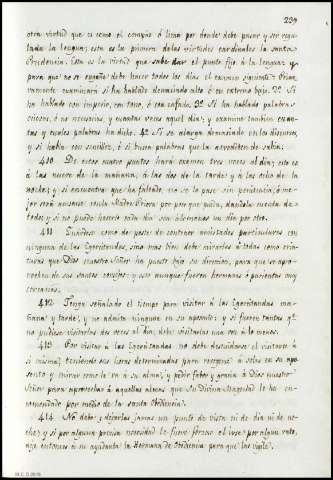 239
otra virtud que es como el compás ó lima por donde debe pasar y ser regu-
lada la lengua; esta es la primera de las virtudes cardinales la santa
Prudencia. Esta es la virtud que sabe dar el punto fijo á la lengua y
para que no se engañe debe hacer todos los dias el examen siguiente. Prime-
ramente examinará si ha hablado demasiado alto ó en extremo bajo. 2º Si
ha hablado con imperio, con tono, ó con enfado. 3º Si ha hablado palabras
ociosas, ó no necesarias, y cuantas veces aquel dia; y examine tambien cuan-
tas y cuales palabras ha dicho. 4º Si se alarga demasiado en los discursos,
y si habla con sencillez, ó si busca palabras que la acrediten de sabia.
410. De estos cuatro puntos hará examen tres veces al dia; esto es
á las nueve de la mañana, á las dos de la tarde y á las ocho de la
noche; y si encuentra que ha faltado, no se lo pase sin penitencia; ó me-
jor será avisarse con la Madre Priora por poco que pueda, dandola cuenta de
todo; y si no puede hacerlo cada dia sea á lo menos un dia por otro.
411 Guardese como de peste de contraer amistades particulares con
ninguna de las Ejercitandas, sino mas bien debe mirarlas á todas como cria-
turas que Dios nuestro Señor ha puesto bajo su direccion, para que se apro-
vechen de sus santos consejos; y esto aunque fueren hermanas ó parientas muy
cercanas.
412 Tenga señalado el tiempo para visitar á las Ejercitandas ma-
ñana y tarde, y no admita ninguna en su aposento; y si fueren tantas qe
no pudiese visitarlas dos veces al dia, debe visitarlas una vez á lo menos.
413 Por visitar á las Ejercitandas no debe descuidarse el visitarse á
si misma; teniendo sus horas determinadas para recogerse á solas en su apo-
sento y mirar como le va á su alma; y pedir favor y gracia á Dios nuestro
Señor para aprovechar á aquellas almas que Su Divina Magestad le ha en-
comendado por medio de la santa Obediencia.
414 No debe dejarlas jamas un punto de vista ni de dia ni de no-
che; y si por alguna precisa necesidad le fuere forzoso el irse por algun rato,
ruege entonces á su ayudanta la Hermana de Obediencia para que las vigile.